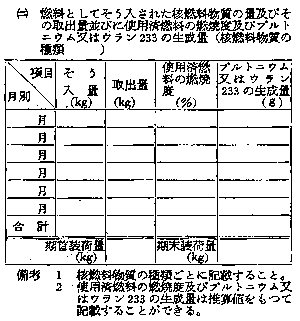 ㈡ 燃料としてそう入された核燃料物質の量及びそ
の取出量並びに使用済燃料の燃焼度及びプルト
ニウム又はウラン233の生成量（核燃料物質の
種類　　）
項目
月別
そう入量(kg)
取出量(kg)
使用済燃料の燃焼度(%)
プルトニウム又はウラン233の生成量(g)
月
月
月
月
月
月
合　計
期首装荷量(kg)
期末装荷量(kg)
備考　1　核燃料物質の種類ごとに記載すること。
2　使用済燃料の燃焼度及びプルトニウム又
はウラン233の生成量は推算値をもつて
記載することができる。